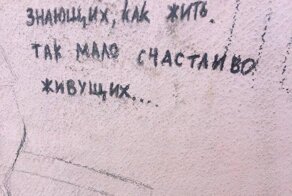 ЗНАЮЩИХ, КАК ЖИТЬ.
ТАК МАЛО СЧАСТЛИВО
ЖИВУЩИХ....